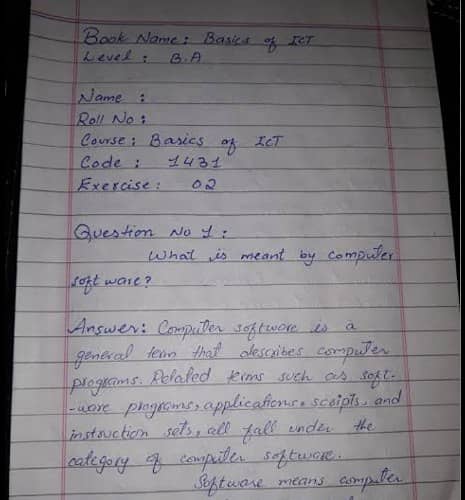 Book Name: Basics of IcT
Level : B.A
Name :
Roll No :
Course: Basics of IcT
Code : 1431
Exercise: 02
Question No 1:
What is meant by computer
soft ware?
Answer: Computer software is a
general term that describes computer
programs. Related terms such as soft-
-ware programs, applications, scripts, and
instruction sets, all fall under the
category of computer software.
Software means computer